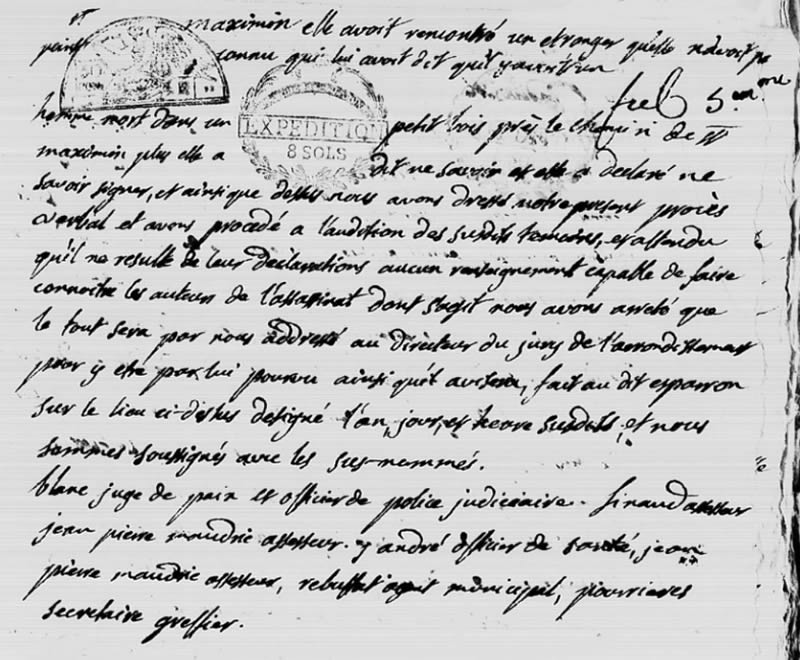 st maximin elle avoit rencontré un etranger qu'elle n'avoit pa
connu qui lui avoit dit qu'il y avoit un
feel 5.em
homme mort dans un petit bois près le chemin de st
EXPEDITION
8 SOLS
maximin plus elle a dit ne savoir et elle a declaré ne
savoir signer, et ainsi que dessus nous avons dressé notre present procès
verbal et avons procédé a l'audition des susdits temoins, et attendu
qu'il ne resulte de leur declarations aucun renseignement capable de faire
connoitre les auteurs de l'assassinat dont s'agit nous avons arreté que
le tout sera par nous addressé au directeur du jury de l'arrondissement
pour y etre par lui pourvu ainsi qu'il avisera, fait au dit esparron
sur le lieu ci-dessus designé l'an, jour, et heure susdits, et nous
sommes soussignés avec les sus-nommés.
blanc juge de paix et officier de police judiciaire. sinaud assesseur
jean pierre maudric assesseur. y andré officier de santé, jean
pierre maudric assesseur, rebuffat agent municipal, pourrieres
secretaire greffier.